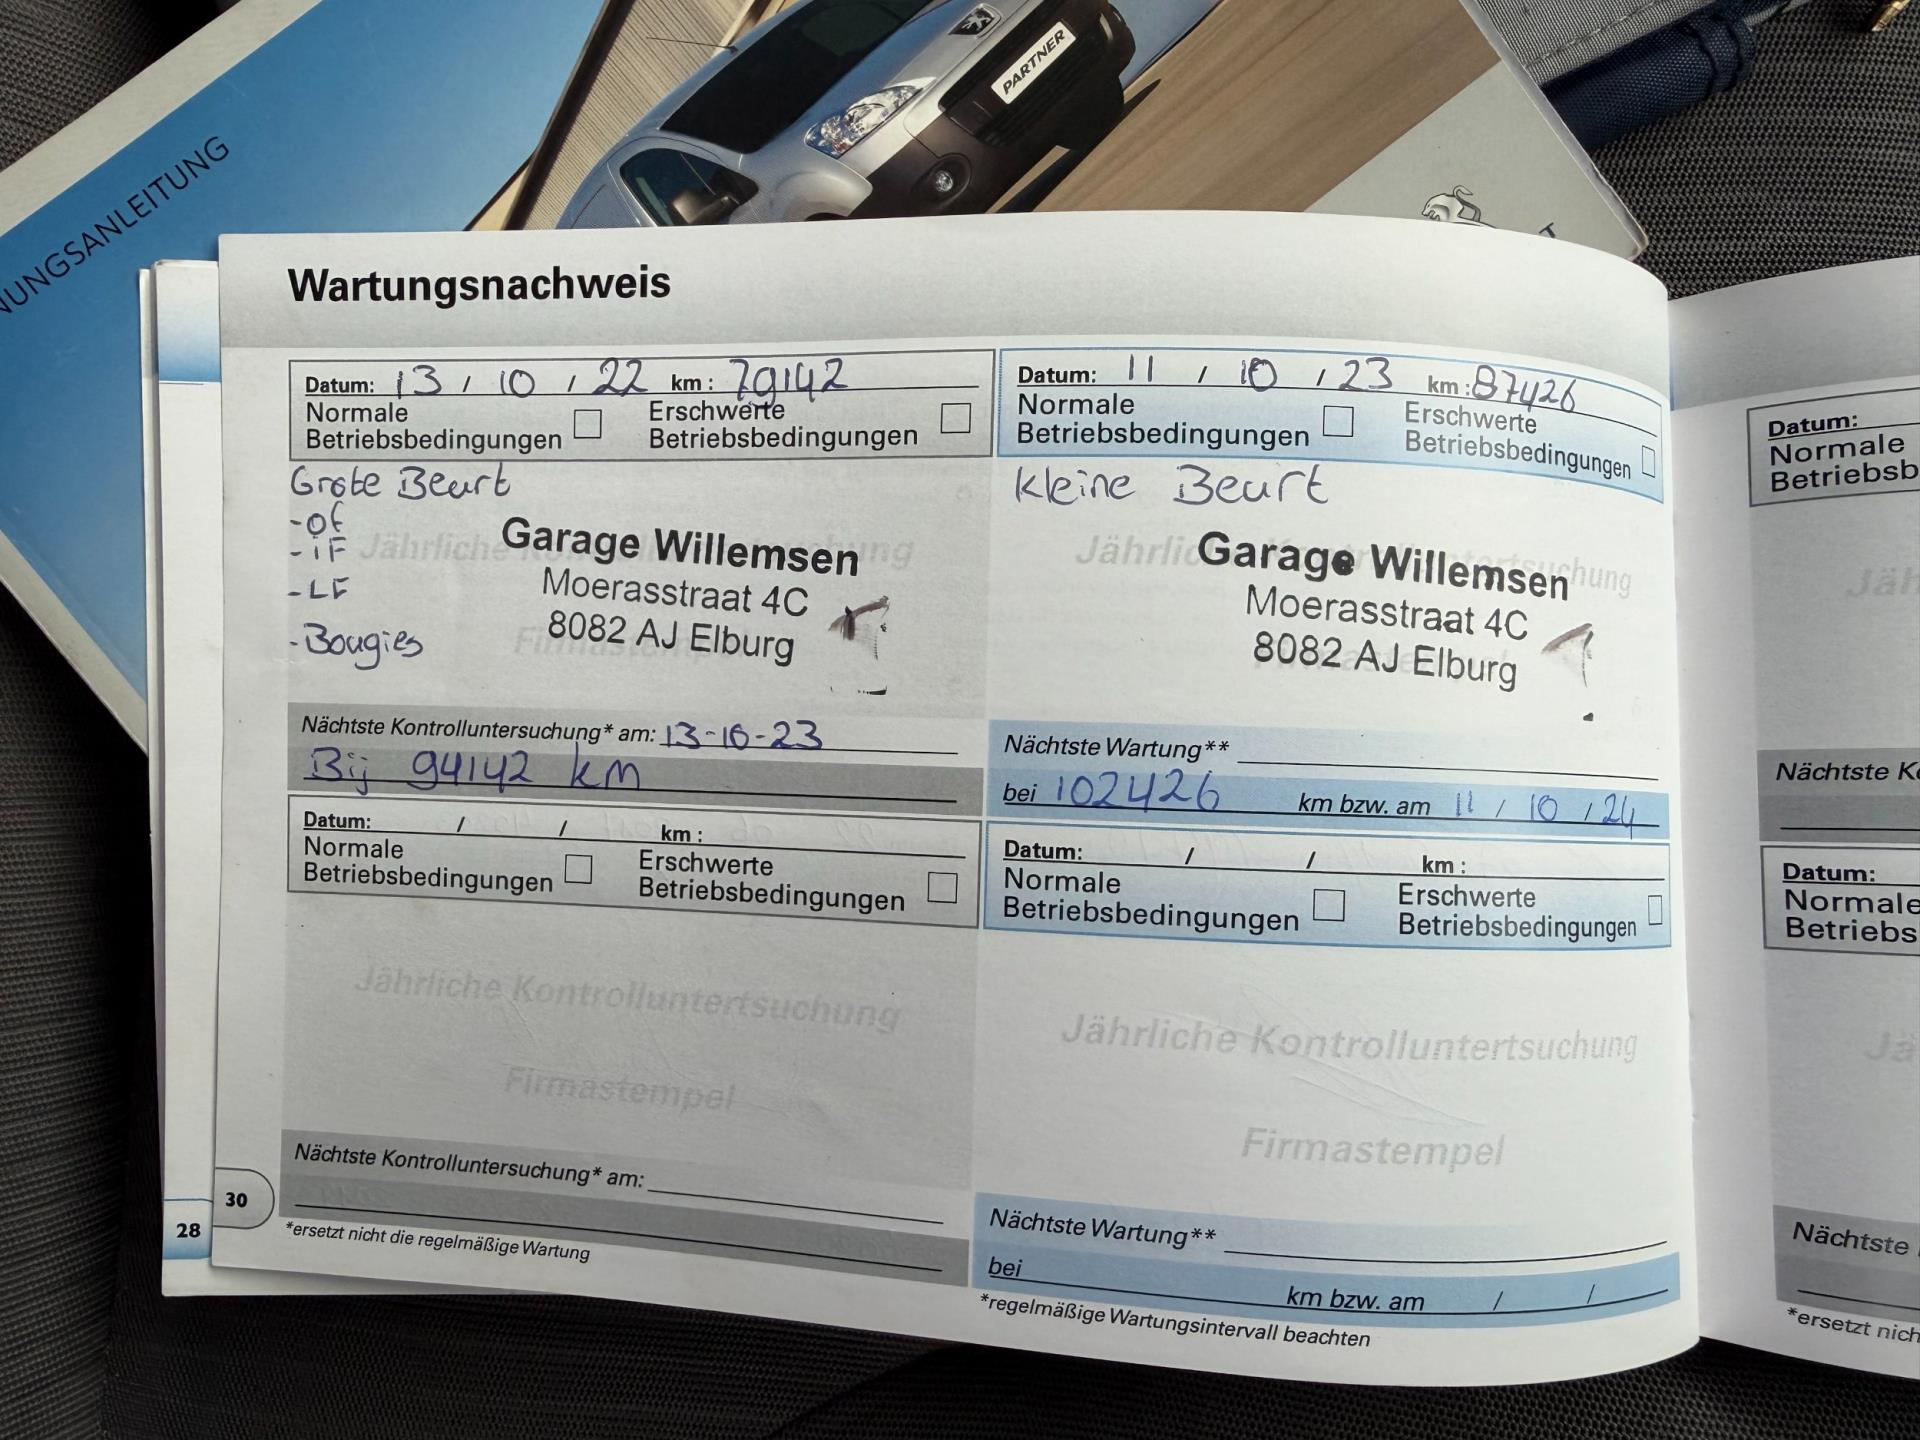 NUNGSANLEITUNG
PARTNER
Wartungsnachweis
Datum: 13 / 10 / 22 km : 79142
Normale
Betriebsbedingungen
Erschwerte
Betriebsbedingungen
Grote Beurt
-of
-iF
-LF
-Bougies
Jährliche Kontrolluntertsuchung
Firmastempel
Garage Willemsen
Moerasstraat 4C
8082 AJ Elburg
Nächtste Kontrolluntersuchung* am: 13-10-23
Bij 94142 km
Datum: 11 / 10 / 23 km : 87426
Normale
Betriebsbedingungen
Erschwerte
Betriebsbedingungen
Kleine Beurt
Jährliche Kontrolluntertsuchung
Garage Willemsen
Moerasstraat 4C
8082 AJ Elburg
Nächtste Wartung**
bei 102426 km bzw. am 11 / 10 / 24
Datum: / / km :
Normale
Betriebsbedingungen
Erschwerte
Betriebsbedingungen
Jährliche Kontrolluntertsuchung
Firmastempel
Nächtste Kontrolluntersuchung* am:
*ersetzt nicht die regelmäßige Wartung
Datum: / / km :
Normale
Betriebsbedingungen
Erschwerte
Betriebsbedingungen
Jährliche Kontrolluntertsuchung
Firmastempel
Nächtste Wartung**
bei km bzw. am / /
*regelmäßige Wartungsintervall beachten
30
28
Datum:
Normale
Betriebsb
Jäh
Nächtste Ko
Datum:
Normale
Betriebs
Jä
Nächtste
*ersetzt nich